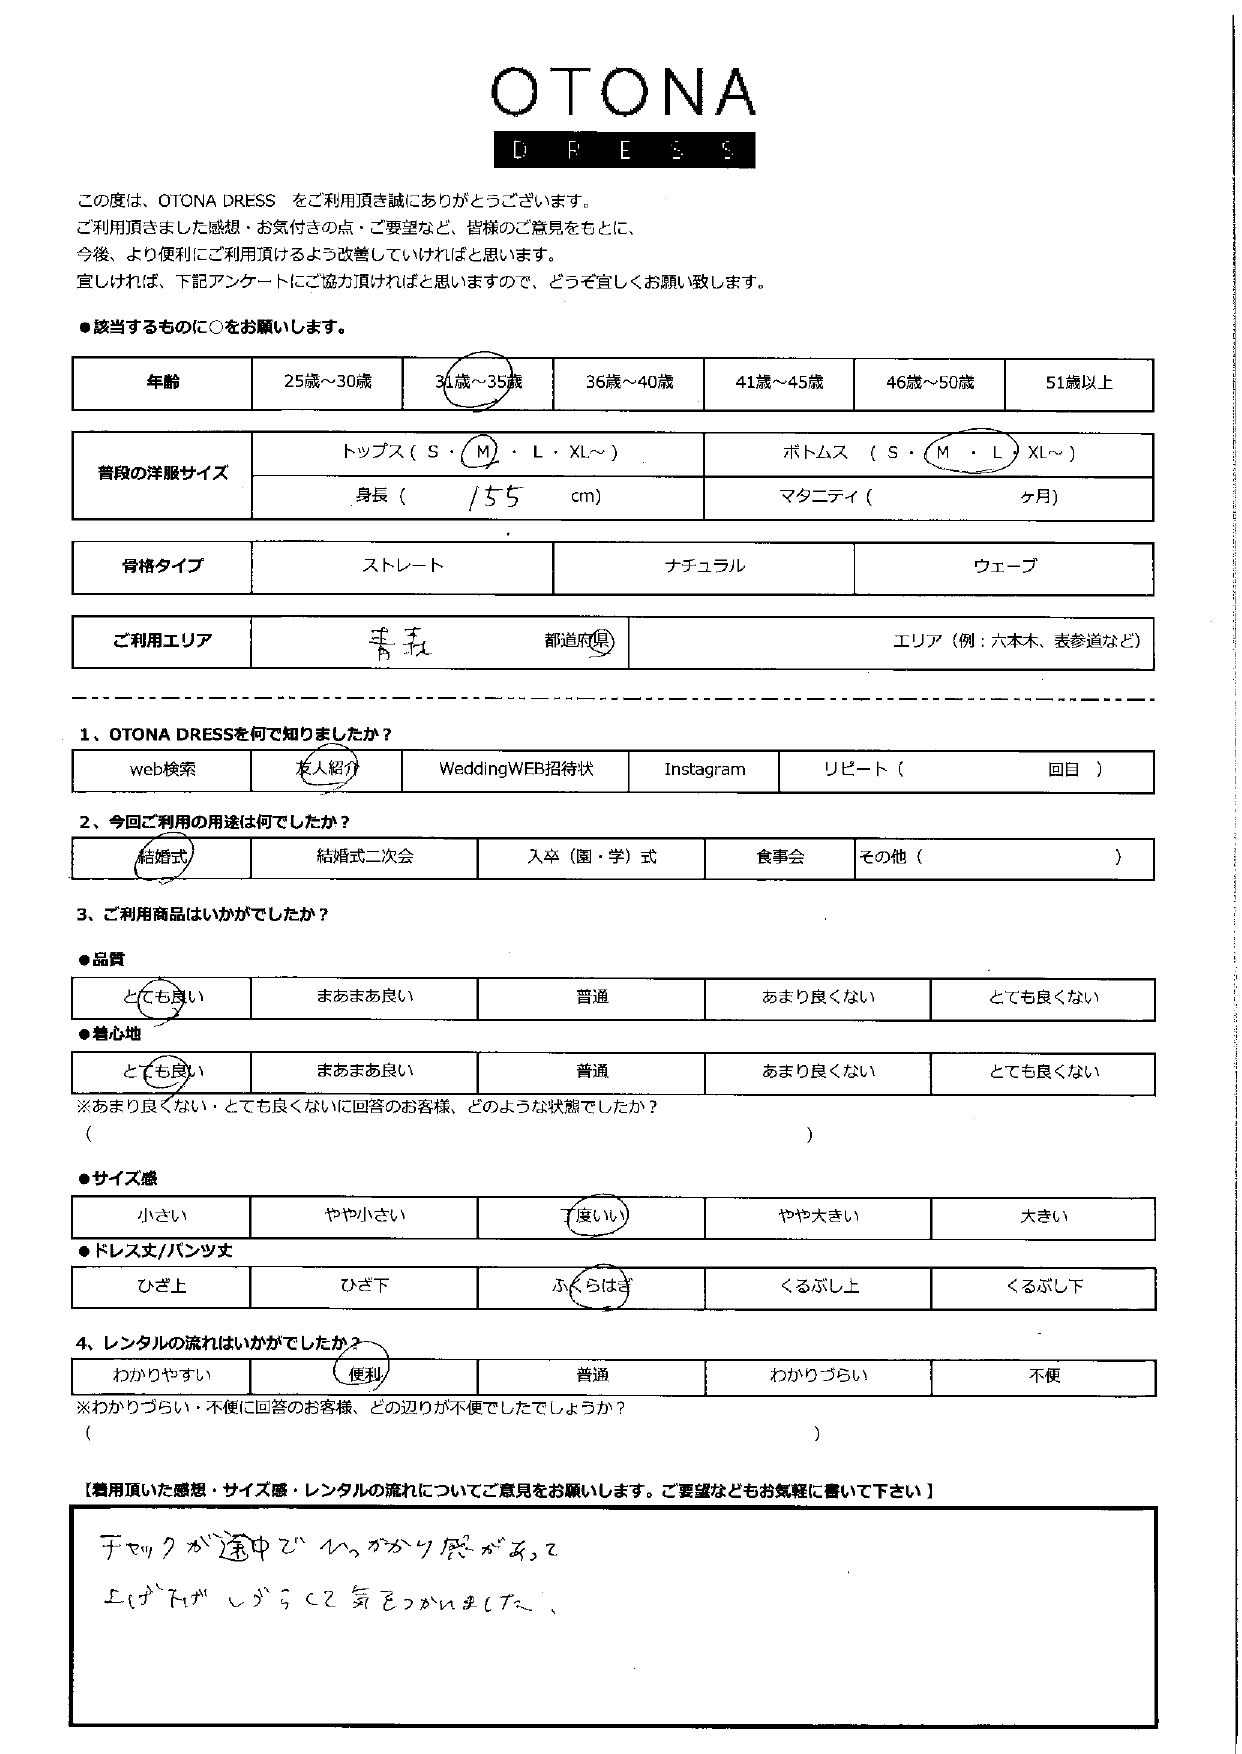 OTONA
DRESS
この度は、OTONA DRESS　をご利用頂き誠にありがとうございます。
ご利用頂きました感想・お気付きの点・ご要望など、皆様のご意見をもとに、
今後、より便利にご利用頂けるよう改善していければと思います。
宜しければ、下記アンケートにご協力頂ければと思いますので、どうぞ宜しくお願い致します。
●該当するものに○をお願いします。
年齢 25歳～30歳 31歳～35歳 36歳～40歳 41歳～45歳 46歳～50歳 51歳以上
普段の洋服サイズ トップス ( S ・ M ・ L ・ XL～ ) ボトムス ( S ・ M ・ L ・ XL～ )
身長 ( 155 cm) マタニティ ( ヶ月)
骨格タイプ ストレート ナチュラル ウェーブ
ご利用エリア 青森 都道府県 エリア（例：六本木、表参道など）
1、OTONA DRESSを何で知りましたか？
web検索 友人紹介 WeddingWEB招待状 Instagram リピート ( 回目 )
2、今回ご利用の用途は何でしたか？
結婚式 結婚式二次会 入卒（園・学）式 食事会 その他 ( )
3、ご利用商品はいかがでしたか？
●品質
とても良い まあまあ良い 普通 あまり良くない とても良くない
●着心地
とても良い まあまあ良い 普通 あまり良くない とても良くない
※あまり良くない・とても良くないに回答のお客様、どのような状態でしたか？
( )
●サイズ感
小さい やや小さい 丁度いい やや大きい 大きい
●ドレス丈/パンツ丈
ひざ上 ひざ下 ふくらはぎ くるぶし上 くるぶし下
4、レンタルの流れはいかがでしたか？
わかりやすい 便利 普通 わかりづらい 不便
※わかりづらい・不便に回答のお客様、どの辺りが不便でしたでしょうか？
( )
【着用頂いた感想・サイズ感・レンタルの流れについてご意見をお願いします。ご要望などもお気軽に書いて下さい】
チャックが途中でひっかかり感があって
上げ下げしづらくて気をつかいました、